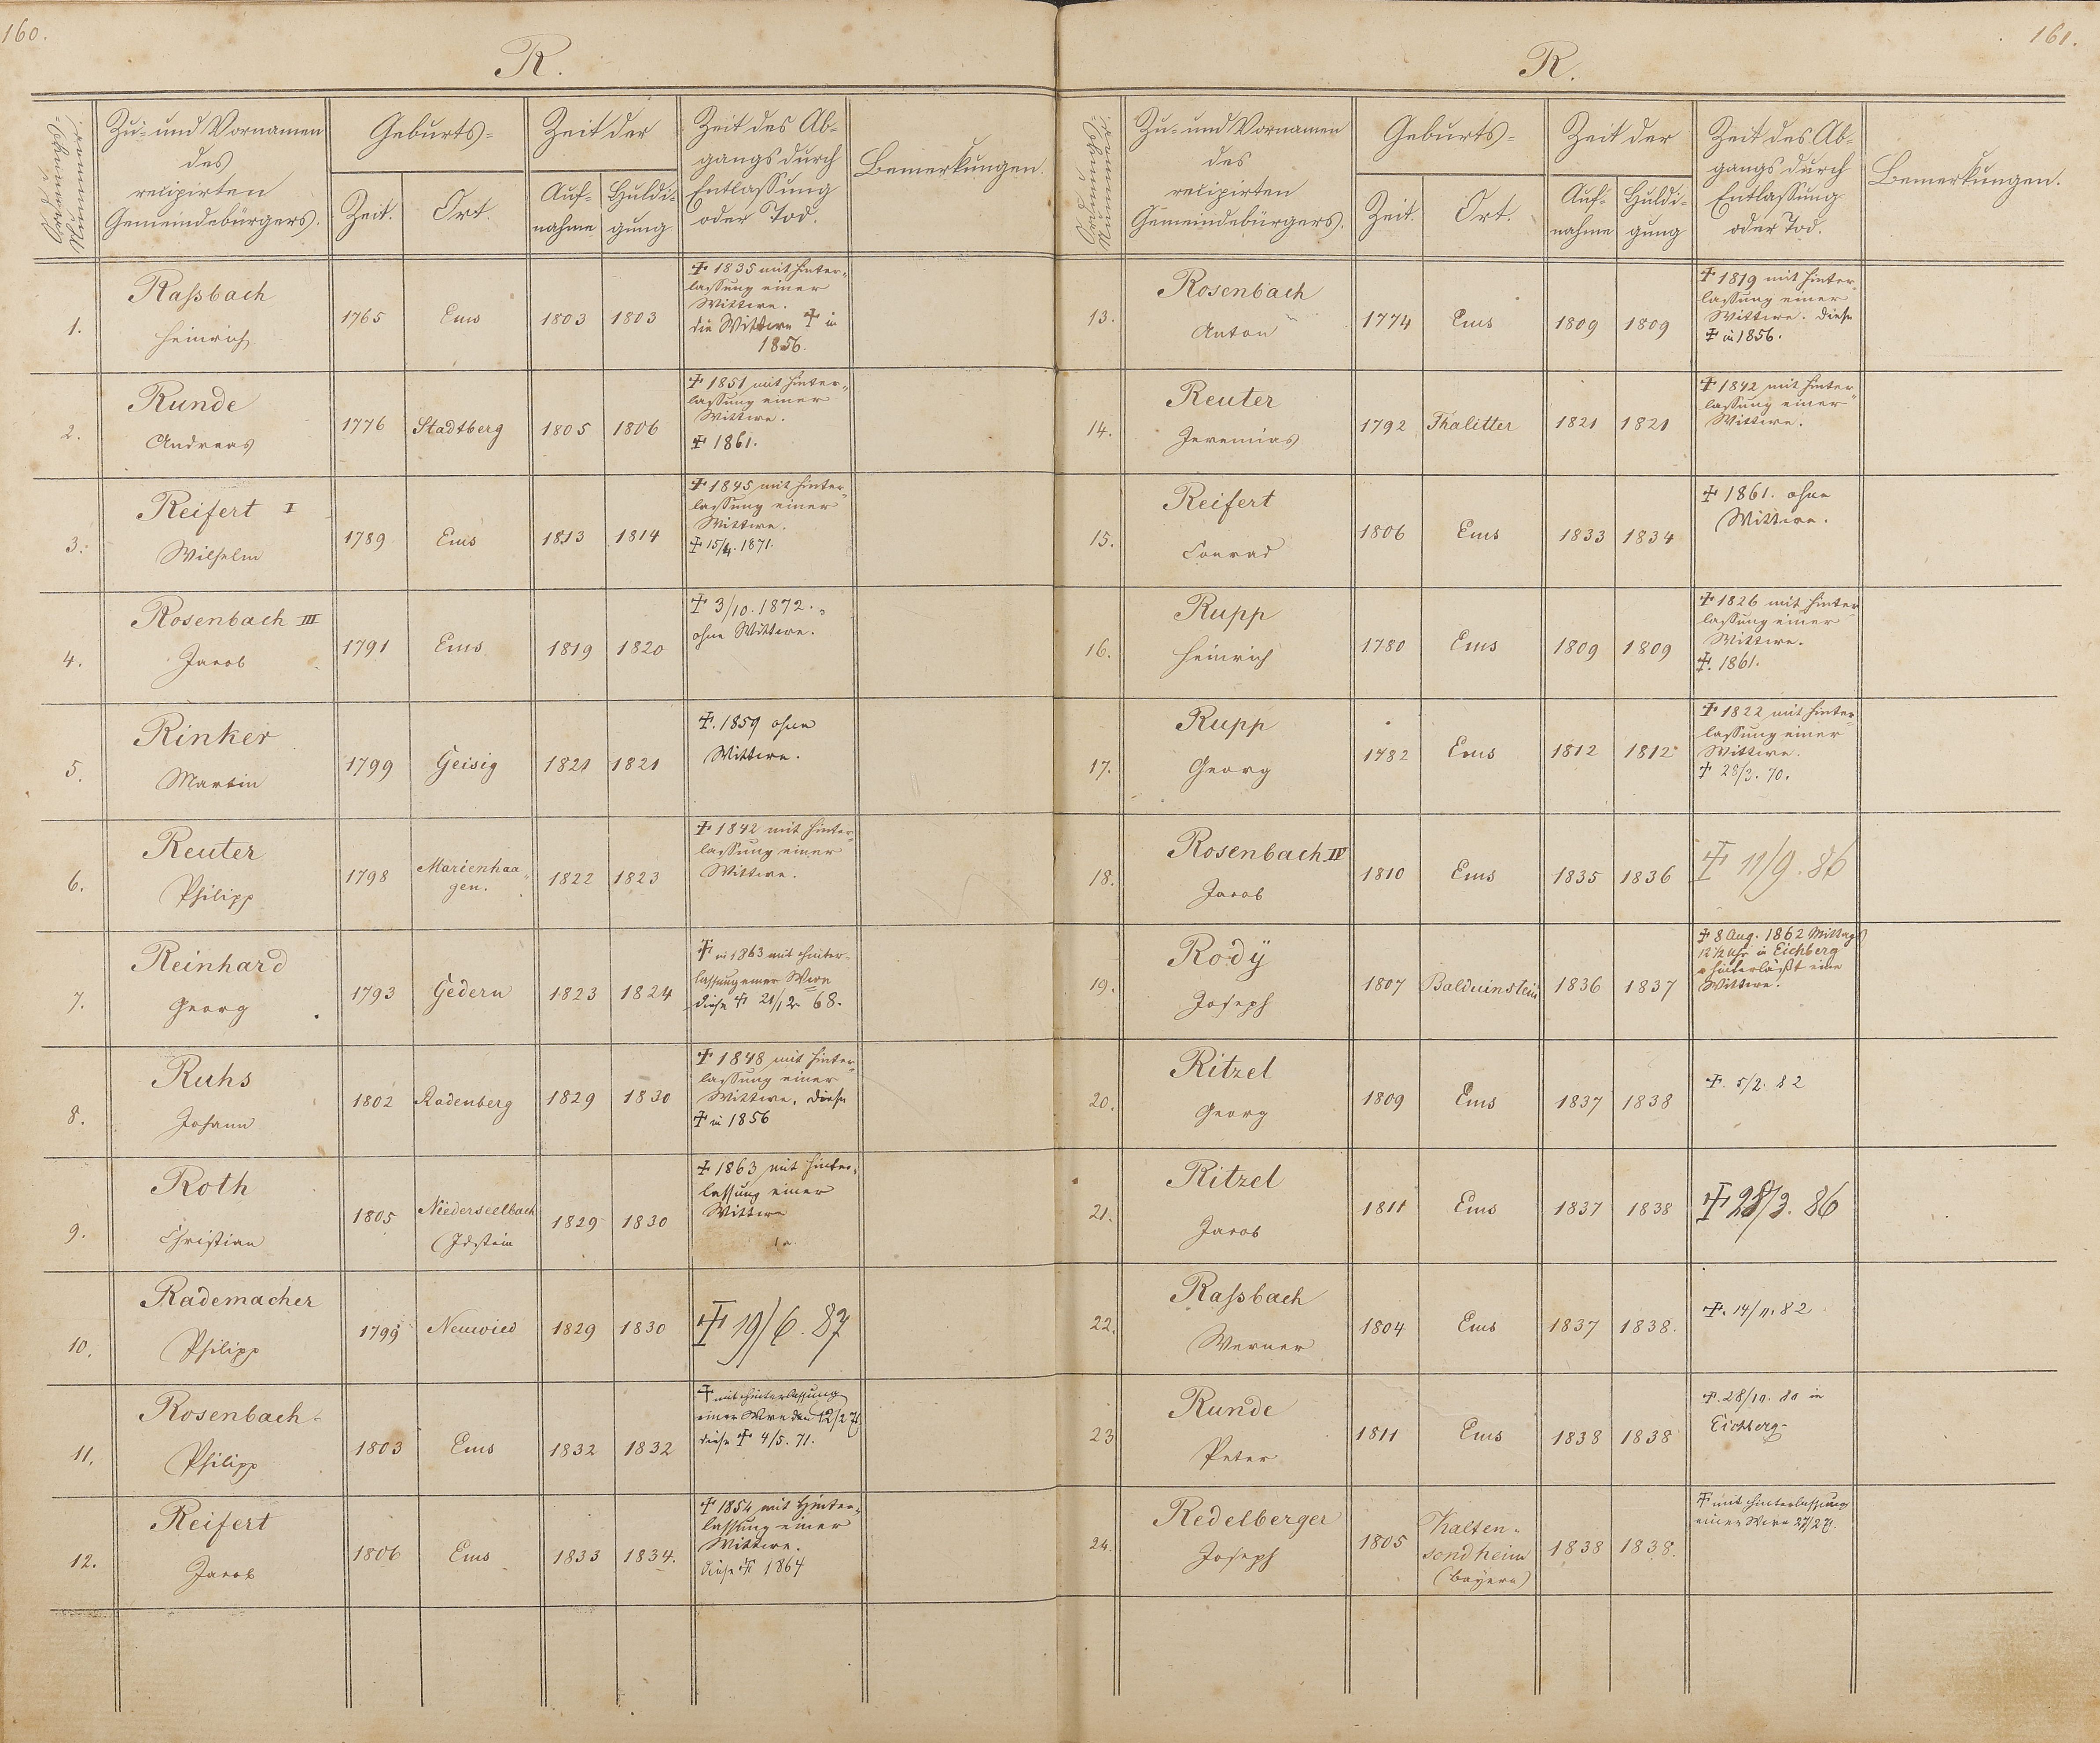 160.
R.
Ordnungs-
Nummer.
Zu- und Vornamen
des
recipirten
Gemeindebürgers.
Geburts-
Zeit.
Ort.
Zeit der
Auf-
nahme
Huldi-
gung
Zeit des Ab-
gangs durch
Entlassung
oder Tod.
Bemerkungen.
1.
Raßbach
Heinrich
1765
Ems
1803
1803
† 1835 mit Hinter-
lassung einer
Wittwe.
die Wittwe † in
1856.
2.
Runde
Andreas
1776
Stadtberg
1805
1806
† 1851 mit Hinter-
lassung einer
Wittwe.
† 1861.
3.
Reifert I
Wilhelm
1789
Ems
1813
1814
† 1845 mit Hinter-
lassung einer
Wittwe.
† 15/4. 1871.
4.
Rosenbach III
Jacob
1791
Ems
1819
1820
† 3/10. 1872.
ohne Wittwe.
5.
Rinker
Martin
1799
Geisig
1821
1821
†. 1859 ohne
Wittwe.
6.
Reuter
Philipp
1798
Marienhaa-
gen.
1822
1823
† 1842 mit Hinter-
lassung einer
Wittwe.
7.
Reinhard
Georg
1793
Gedern
1823
1824
† in 1863 mit Hinter-
lassung einer Wwe
diese † 21/12. 68.
8.
Ruhs
Johann
1802
Radenberg
1829
1830
† 1848 mit Hinter-
lassung einer
Wittwe, diese
† in 1856
9.
Roth
Christian
1805
Niederseelbach
(Idstein
1829
1830
† 1863 mit Hinter-
lassung einer
Wittwe
10.
Rademacher
Philipp
1799
Neuwied
1829
1830
† 19/6. 87
11.
Rosenbach
Philipp
1803
Ems
1832
1832
† mit Hinterlassung
einer Wwe den 12/2
diese † 4/5. 71.
12.
Reifert
Jacob
1806
Ems
1833
1834.
† 1854 mit Hinter-
lassung einer
Wittwe.
diese † 1864
161.
R.
Ordnungs-
Nummer.
Zu- und Vornamen
des
recipirten
Gemeindebürgers.
Geburts-
Zeit.
Ort.
Zeit der
Auf-
nahme
Huldi-
gung
Zeit des Ab-
gangs durch
Entlassung
oder Tod.
Bemerkungen.
13.
Rosenbach
Anton
1774
Ems
1809
1809
† 1819 mit Hinter-
lassung einer
Wittwe. diese
† in 1856.
14.
Reuter
Jeremias
1792
Thalitter
1821
1821
† 1842 mit Hinter-
lassung einer
Wittwe.
15.
Reifert
Conrad
1806
Ems
1833
1834
† 1861. ohne
Wittwe.
16.
Rupp
Heinrich
1780
Ems
1809
1809
† 1826 mit Hinter-
lassung einer
Wittwe.
†. 1861.
17.
Rupp
Georg
1782
Ems
1812
1812
† 1822 mit Hinter-
lassung einer
Wittwe.
† 28/3. 70.
18.
Rosenbach IV
Jacob
1810
Ems
1835
1836
† 11/9. 86
19.
Rody
Joseph
1807
Balduinstein
1836
1837
† 8 Aug. 1862 Mittags
12 1/2 Uhr in Eichberg
hinterläßt eine
Wittwe.
20.
Ritzel
Georg
1809
Ems
1837
1838
†. 5/2. 82
21.
Ritzel
Jacob
1811
Ems
1837
1838
† 28/3. 86
22.
Raßbach
Werner
1804
Ems
1837
1838.
†. 14/11. 82
23
Runde
Peter
1811
Ems
1838
1838
†. 28/10. 80 in
Eichberg.
24.
Redelberger
Joseph
1805
Kalten-
sondheim
(Bayern)
1838
1838.
† mit Hinterlassung
einer Wwe 27/2